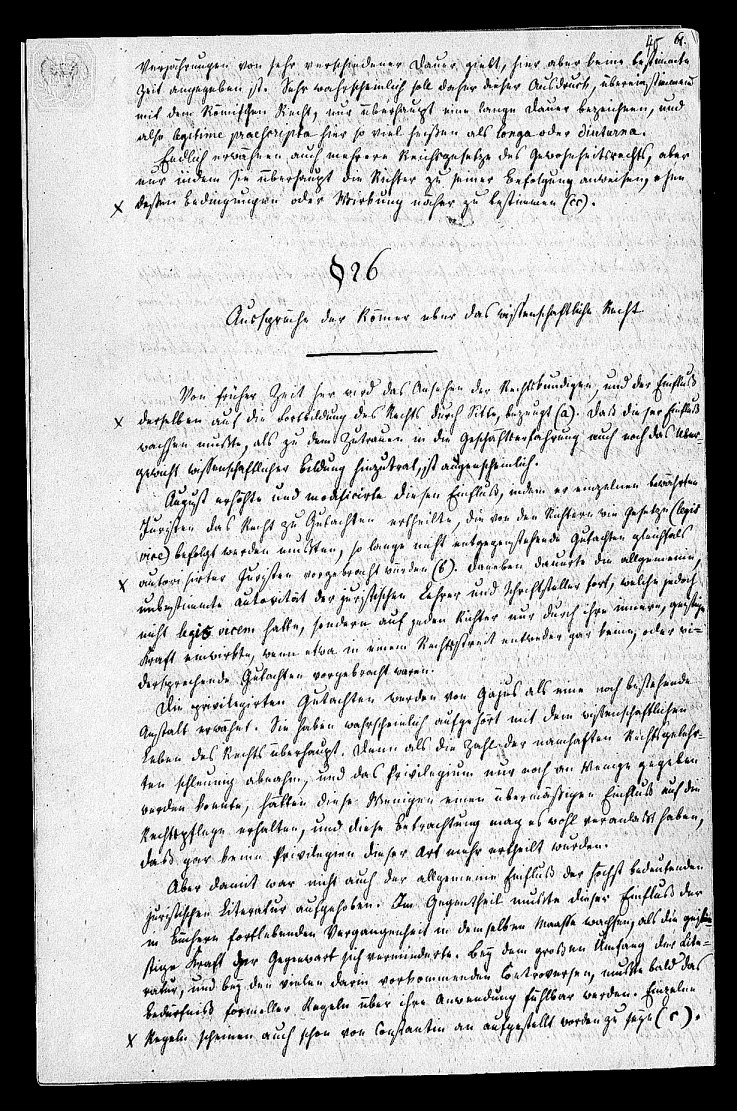 45 61.
Verjährungen von sehr verschiedener Dauer giebt, hier aber keine bestimmte
Zeit angegeben ist. Sehr wahrscheinlich soll daher dieser Ausdruck, übereinstimmend
mit dem Römischen Recht, nur überhaupt eine lange Dauer bezeichnen, und
also legitime praescripta hier so viel heißen als longa oder diuturna.
Endlich erwähnen auch mehrere Reichsgesetze des Gewohnheitsrechts, aber
nur indem sie überhaupt die Richter zu seiner Befolgung anweisen, ohne
dessen Bedingungen oder Wirkung näher zu bestimmen (cc).
§ 26
Aussprüche der Römer über das wissenschaftliche Recht
Von früher Zeit her wird das Ansehen der Rechtskundigen, und der Einfluß
derselben auf die Fortbildung des Rechts durch Sitte, bezeugt (a). Daß dieser Einfluß
wachsen mußte, als zu dem Zutrauen in die Geschäftserfahrung auch noch das Über-
gewicht wissenschaftlicher Bildung hinzutrat, ist augenscheinlich.
August erhöhte und modificirte diesen Einfluß, indem er einzelnen bewährten
Juristen das Recht zu Gutachten ertheilte, die von den Richtern wie Gesetze (legis
vice) befolgt werden mußten, so lange nicht entgegenstehende Gutachten gleichfalls
autorisirter Juristen vorgebracht würden (b). Daneben dauerte die allgemeine,
unbestimmte Autorität der juristischen Lehrer und Schriftsteller fort, welche jedoch
nicht legis vicem hatte, sondern auf jeden Richter nur durch ihre innere, geistige
Kraft einwirkte, wenn etwa in einem Rechtsstreit entweder gar keine, oder wi-
dersprechende Gutachten vorgebracht waren.
Die privilegirten Gutachten werden von Gajus als eine noch bestehende
Anstalt erwähnt. Sie haben wahrscheinlich aufgehört mit dem wissenschaftlichen
Leben des Rechts überhaupt. Denn als die Zahl der namhaften Rechtsgelehr-
ten schleunig abnahm, und das Privilegium nur noch an Wenige gegeben
werden konnte, hätten diese Wenigen einen übermäßigen Einfluß auf die
Rechtspflege erhalten, und diese Betrachtung mag es wohl veranlaßt haben,
daß gar keine Privilegien dieser Art mehr ertheilt wurden.
Aber damit war nicht auch der allgemeine Einfluß der höchst bedeutenden
juristischen Literatur aufgehoben. Im Gegentheil mußte dieser Einfluß der
in Büchern fortlebenden Vergangenheit in demselben Maaße wachsen, als die geis-
tige Kraft der Gegenwart sich verminderte. Bey dem großen Umfang der Lite-
ratur, und bey den vielen darin vorkommenden Controversen, mußte bald das
Bedürfniß formeller Regeln über ihre Anwendung fühlbar werden. Einzelne
Regeln scheinen auch schon von Constantin an aufgestellt worden zu seyn (c).